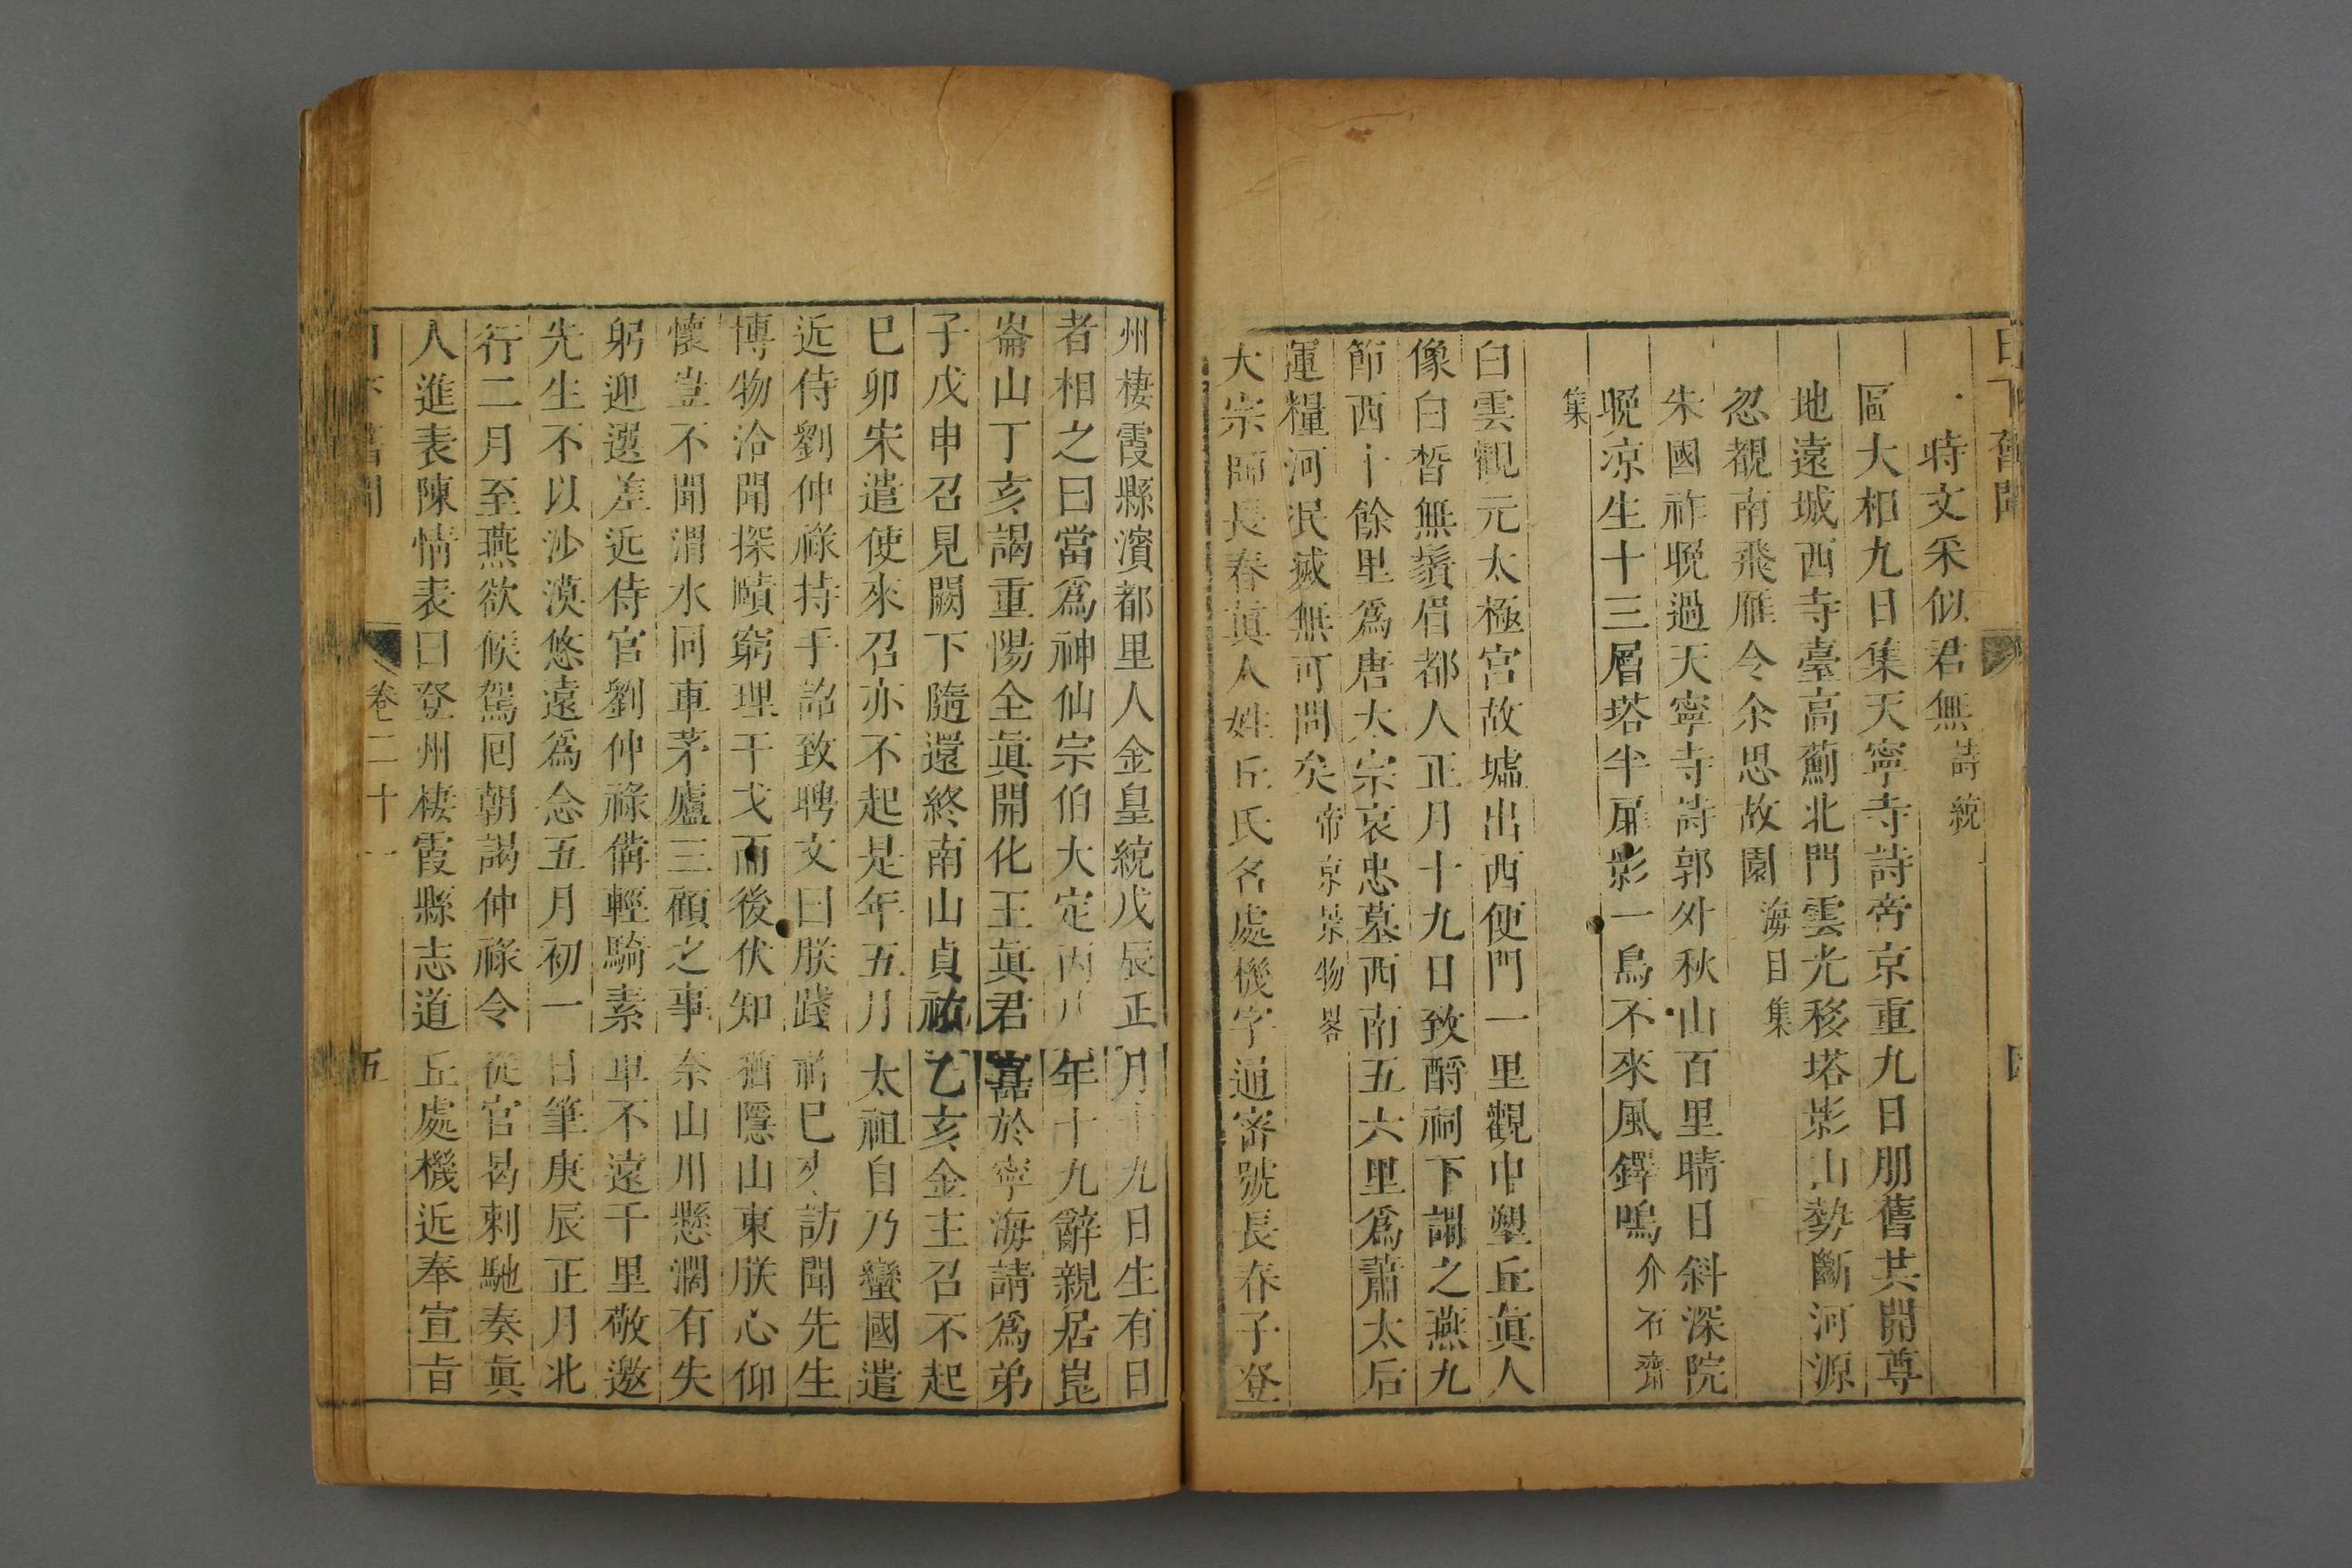 日下舊聞 四
時文采似君無 詩統
區大相九日集天寧寺詩帝京重九日朋舊共開尊
地遠城西寺臺高薊北門雲光移塔影山勢斷河源
忽覩南飛雁令余思故園 海目集
朱國祚晚過天寧寺詩郭外秋山百里晴日斜深院
晚凉生十三層塔半扉影一鳥不來風鐸鳴 介石齋
集
白雲觀元太極宮故墟出西便門一里觀中塑丘眞人
像白皙無鬚眉都人正月十九日致酹祠下謂之燕九
節西十餘里爲唐太宗哀忠墓西南五六里爲蕭太后
運糧河泯滅無可問矣 帝京景物畧
大宗師長春眞人姓丘氏名處機字通密號長春子登
州棲霞縣濱都里人金皇統戊辰正月十九日生有日
者相之曰當爲神仙宗伯大定丙戌年十九辭親居崑
崙山丁亥謁重陽全眞開化王眞君於寧海請爲弟
子戊申召見闕下隨還終南山貞祐乙亥金主召不起
巳卯宋遣使來召亦不起是年五月太祖自乃蠻國遣
近侍劉仲祿持手詔致聘文曰朕踐祚巳來訪聞先生
博物洽聞探賾窮理干戈而後伏知猶隱山東朕心仰
懷豈不聞渭水同車茅廬三顧之事奈山川懸濶有失
躬迎選差近侍官劉仲祿備輕騎素車不遠千里敬邀
先生不以沙漠悠遠爲念五月初一日筆庚辰正月北
行二月至燕欲候駕回朝謁仲祿令從官曷剌馳奏眞
人進表陳情表曰登州棲霞縣志道丘處機近奉宣旨
日下舊聞 卷二十一 五